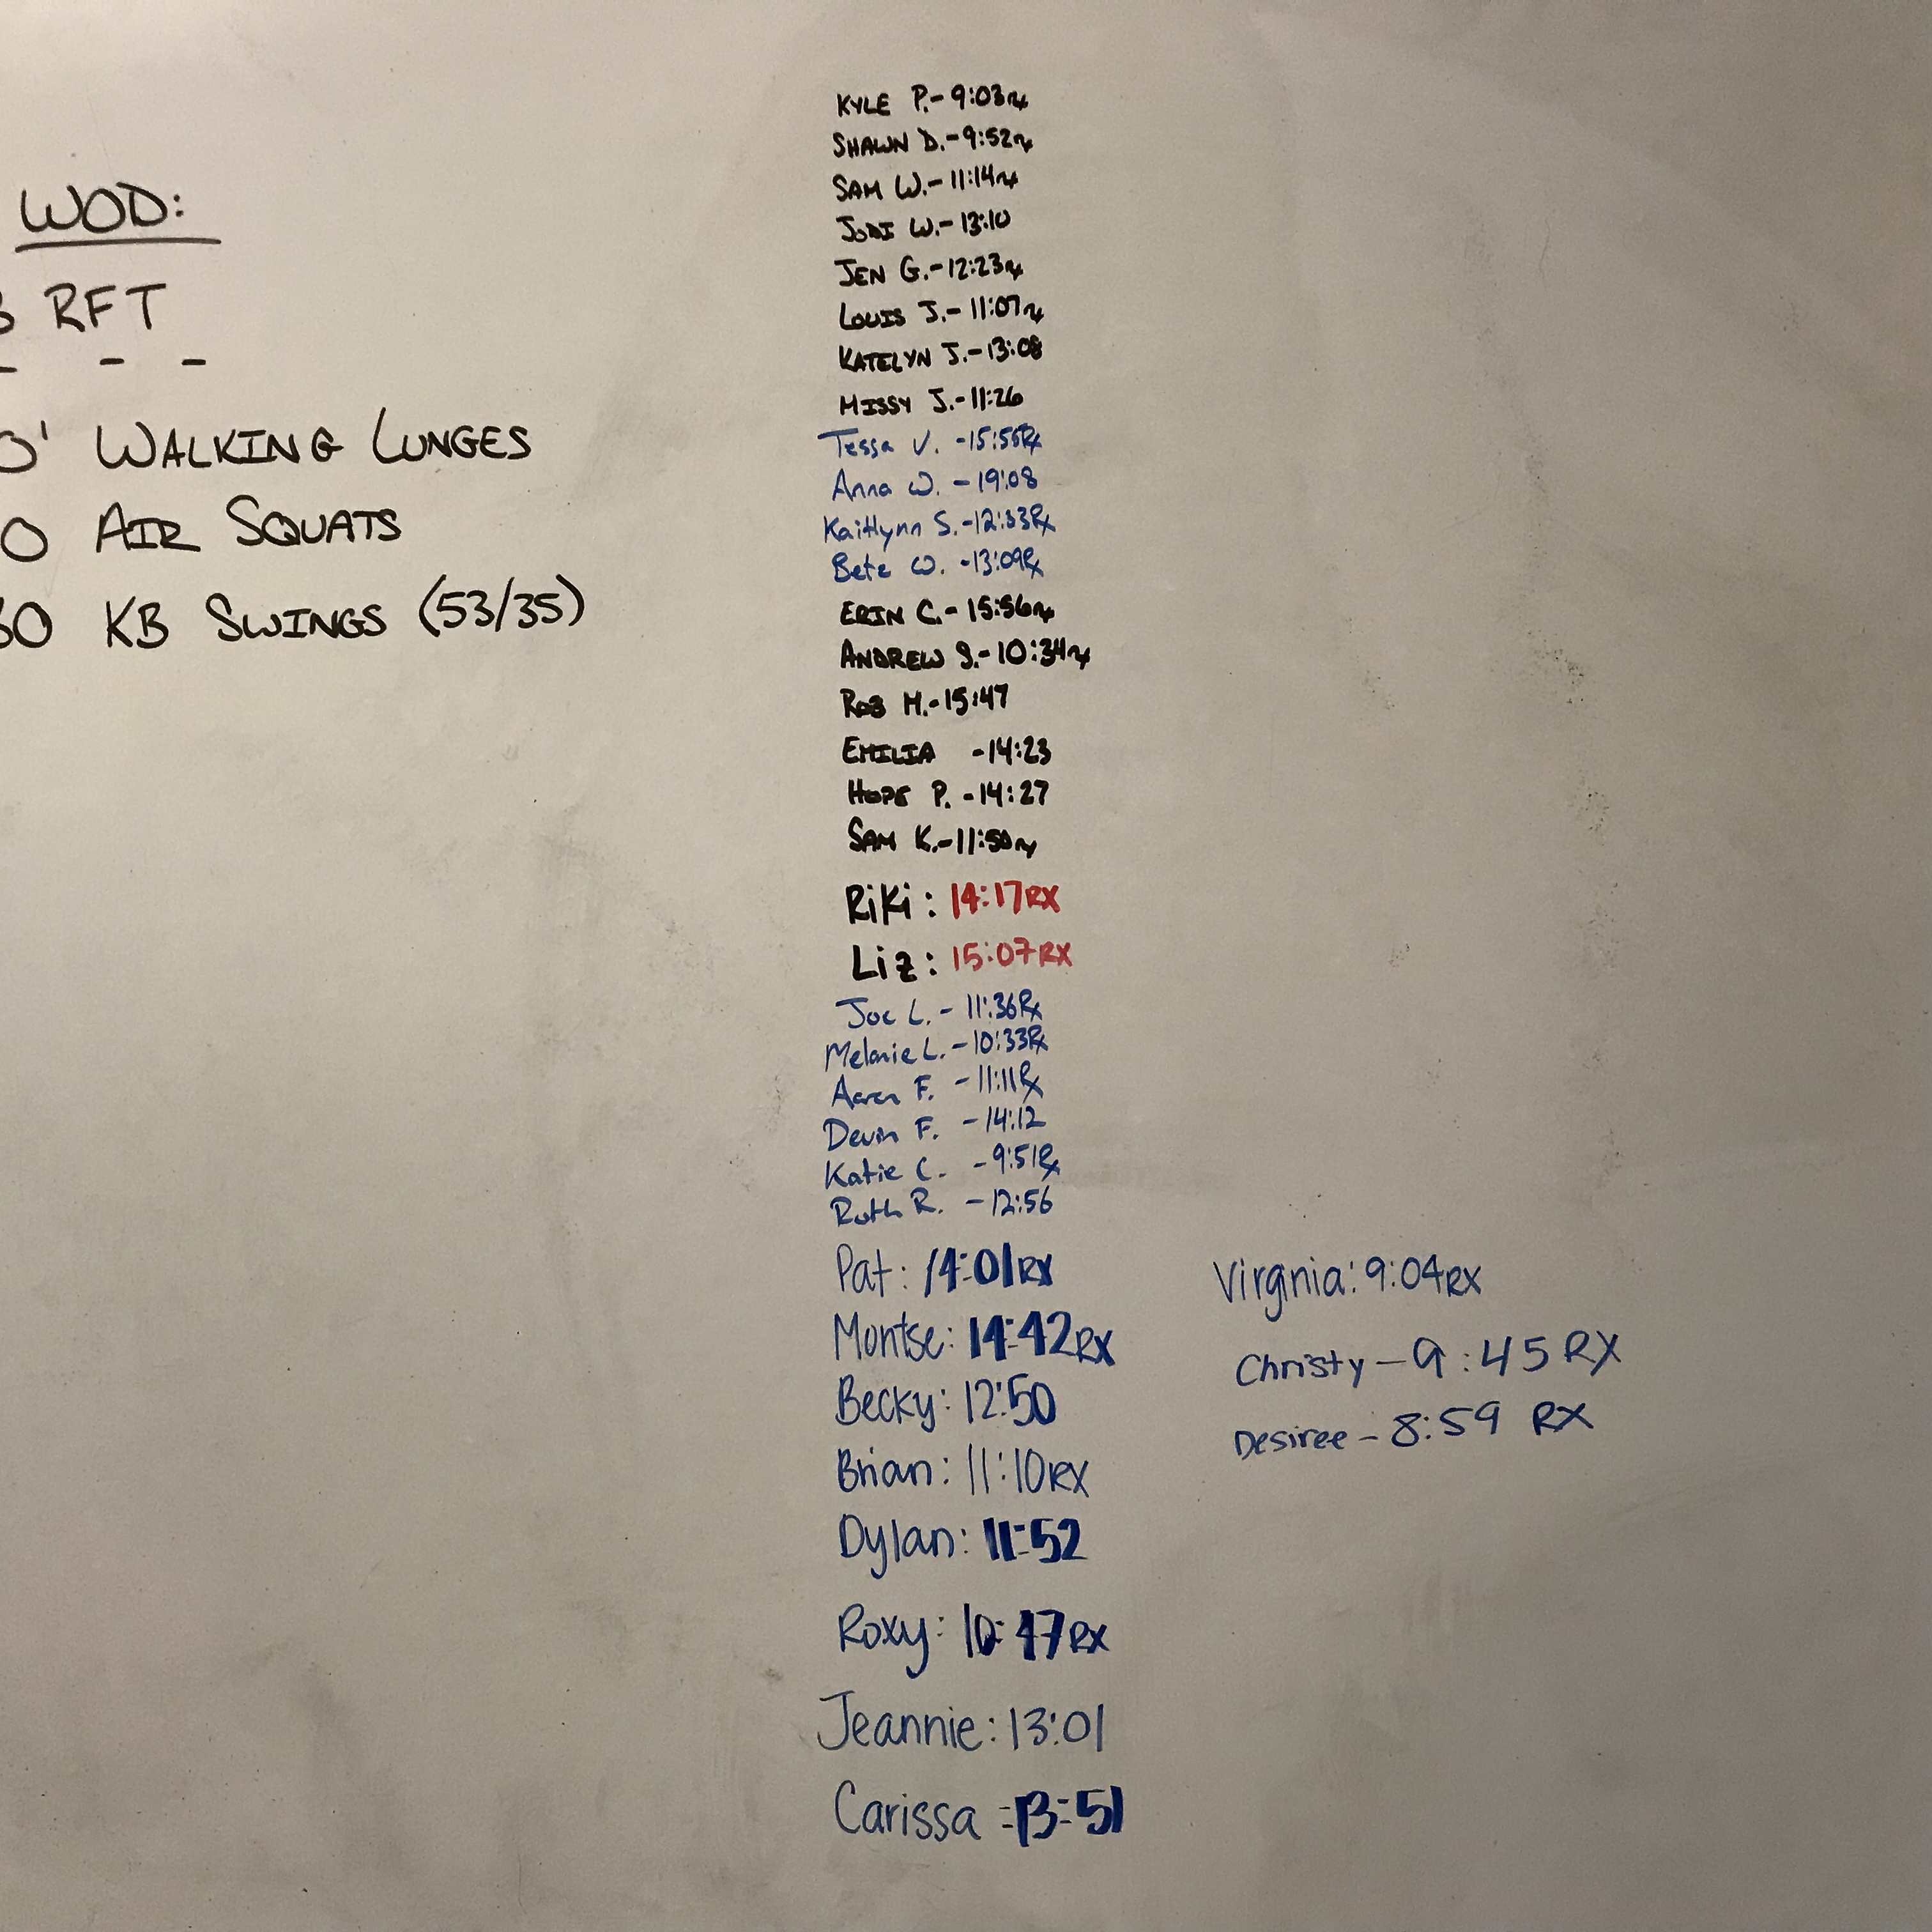 WOD:
3 RFT
- - -
0' WALKING LUNGES
0 AIR SQUATS
30 KB SWINGS (53/35)
KYLE P.- 9:03rx
SHAWN D.- 9:52rx
SAM W.- 11:14rx
JODI W.- 13:10
JEN G.- 12:23rx
LOUIS J.- 11:07rx
KATELYN J.- 13:08
MISSY J.- 11:26
Tessa V. - 15:55Rx
Anna W. - 19:08
Kaitlynn S. - 12:33Rx
Bete W. - 13:09Rx
ERIN C.- 15:56rx
ANDREW S.- 10:34rx
ROB M.- 15:47
EMILIA - 14:23
HOPE P. - 14:27
SAM K.- 11:50rx
RiKi: 14:17RX
Liz: 15:07RX
Joe L. - 11:36Rx
Melanie L. - 10:33Rx
Aaron F. - 11:11Rx
Devin F. - 14:12
Katie C. - 9:51Rx
Ruth R. - 12:56
Pat: 14:01RX
Montse: 14:42RX
Becky: 12:50
Brian: 11:10RX
Dylan: 11:52
Roxy: 10:47RX
Jeannie: 13:01
Carissa: 13:51
Virginia: 9:04RX
Christy - 9:45 RX
Desiree - 8:59 RX